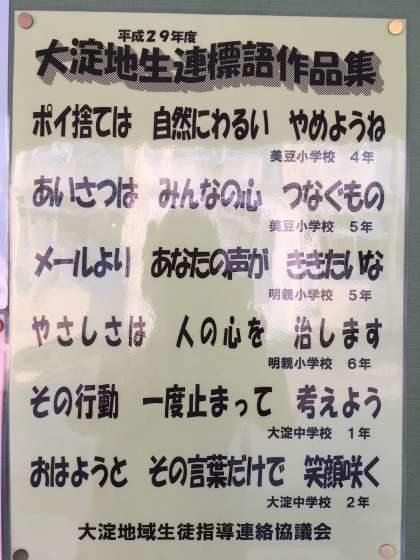 平成29年度
大淀地生連標語作品集
ポイ捨ては 自然にわるい やめようね
美豆小学校 4年
あいさつは みんなの心 つなぐもの
美豆小学校 5年
メールより あなたの声が ききたいな
明親小学校 5年
やさしさは 人の心を 治します
明親小学校 6年
その行動 一度止まって 考えよう
大淀中学校 1年
おはようと その言葉だけで 笑顔咲く
大淀中学校 2年
大淀地域生徒指導連絡協議会